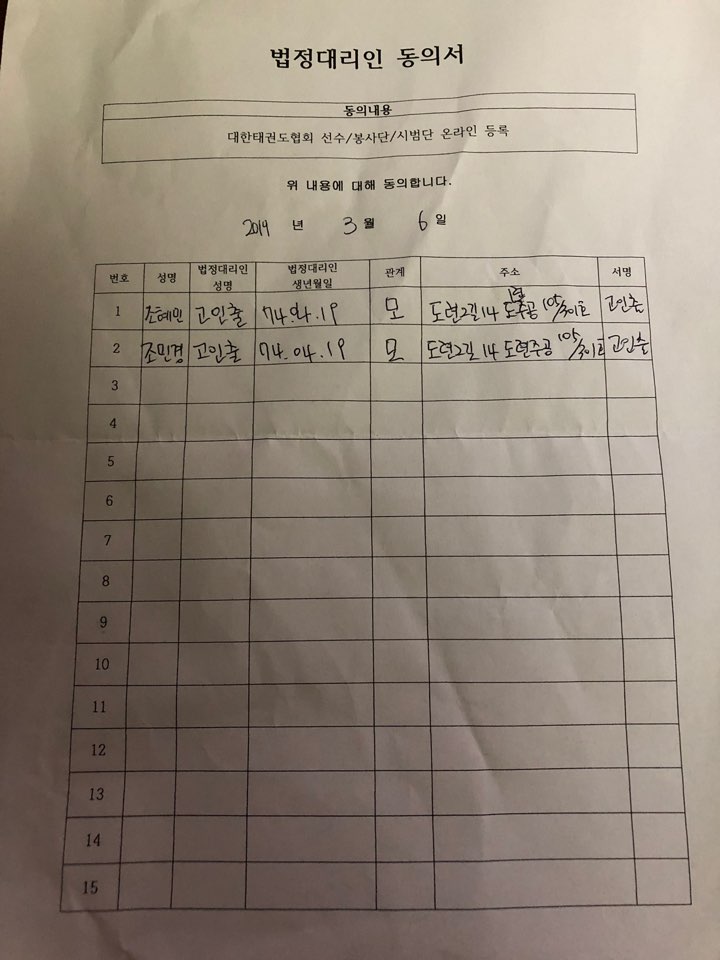 법정대리인 동의서
동의내용
대한태권도협회 선수/봉사단/시범단 온라인 등록
위 내용에 대해 동의합니다.
2019 년 3 월 6 일
번호 성명 법정대리인 성명 법정대리인 생년월일 관계 주소 서명
1 조혜민 고인출 74.04.19 모 도련2길 14 도련주공 105/301호 고인출
2 조민경 고인출 74.04.19 모 도련2길 14 도련주공 105/301호 고인출
3
4
5
6
7
8
9
10
11
12
13
14
15